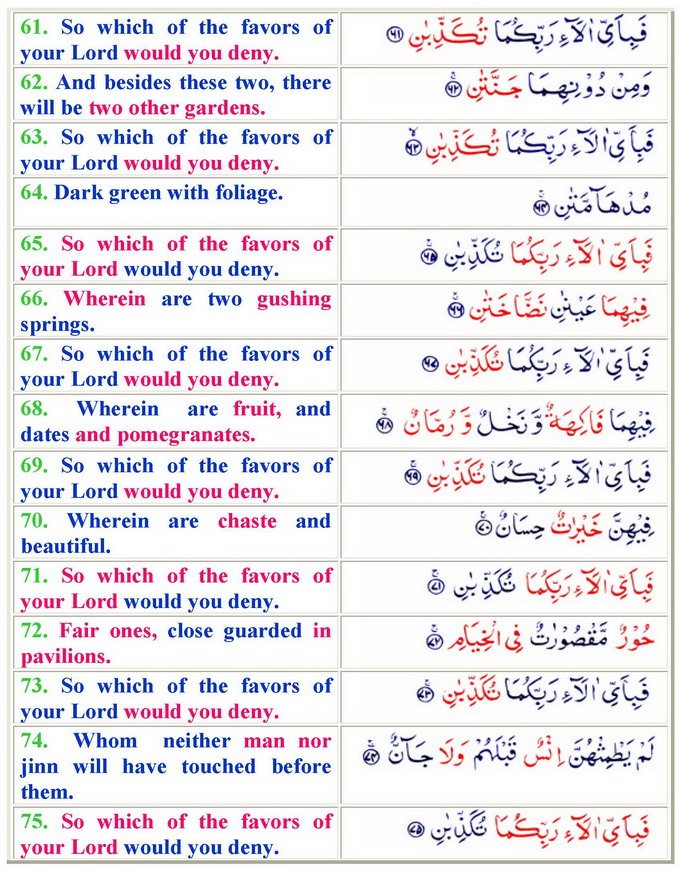 61. So which of the favors of
your Lord would you deny.
فَبِاَىِّ اٰلَآءِ رَبِّكُمَا تُكَذِّبٰنِ ۶۱
62. And besides these two, there
will be two other gardens.
وَمِنْ دُوْنِهِمَا جَنَّتٰنِ ۶۲
63. So which of the favors of
your Lord would you deny.
فَبِاَىِّ اٰلَآءِ رَبِّكُمَا تُكَذِّبٰنِ ۶۳
64. Dark green with foliage.
مُدْهَآمَّتٰنِ ۶۴
65. So which of the favors of
your Lord would you deny.
فَبِاَىِّ اٰلَآءِ رَبِّكُمَا تُكَذِّبٰنِ ۶۵
66. Wherein are two gushing
springs.
فِيْهِمَا عَيْنٰنِ نَضَّاخَتٰنِ ۶۶
67. So which of the favors of
your Lord would you deny.
فَبِاَىِّ اٰلَآءِ رَبِّكُمَا تُكَذِّبٰنِ ۶۷
68. Wherein are fruit, and
dates and pomegranates.
فِيْهِمَا فَاكِهَةٌ وَّنَخْلٌ وَّرُمَّانٌ ۶۸
69. So which of the favors of
your Lord would you deny.
فَبِاَىِّ اٰلَآءِ رَبِّكُمَا تُكَذِّبٰنِ ۶۹
70. Wherein are chaste and
beautiful.
فِيْهِنَّ خَيْرٰتٌ حِسَانٌ ۷۰
71. So which of the favors of
your Lord would you deny.
فَبِاَىِّ اٰلَآءِ رَبِّكُمَا تُكَذِّبٰنِ ۷۱
72. Fair ones, close guarded in
pavilions.
حُوْرٌ مَّقْصُوْرٰتٌ فِى الْخِيَامِ ۷۲
73. So which of the favors of
your Lord would you deny.
فَبِاَىِّ اٰلَآءِ رَبِّكُمَا تُكَذِّبٰنِ ۷۳
74. Whom neither man nor
jinn will have touched before
them.
لَمْ يَطْمِثْهُنَّ اِنْسٌ قَبْلَهُمْ وَلَا جَآنٌّ ۷۴
75. So which of the favors of
your Lord would you deny.
فَبِاَىِّ اٰلَآءِ رَبِّكُمَا تُكَذِّبٰنِ ۷۵